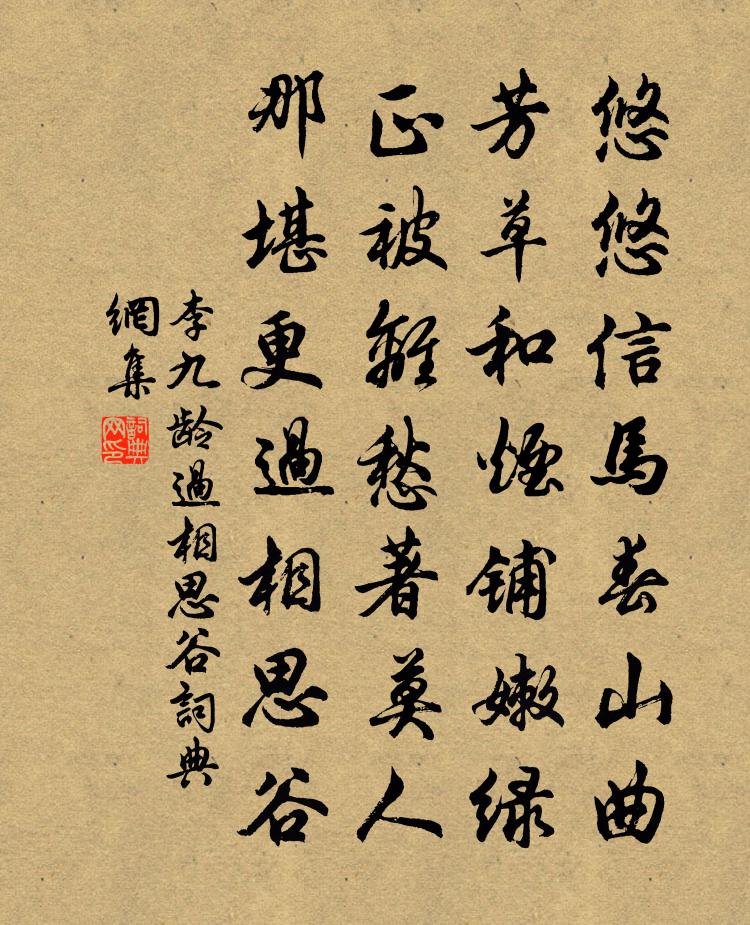 悠悠信馬春山曲
芳草和煙鋪嫩綠
正被離愁著莫人
那堪更過相思谷
李九齡過相思谷詞典
網集
詞典
网印